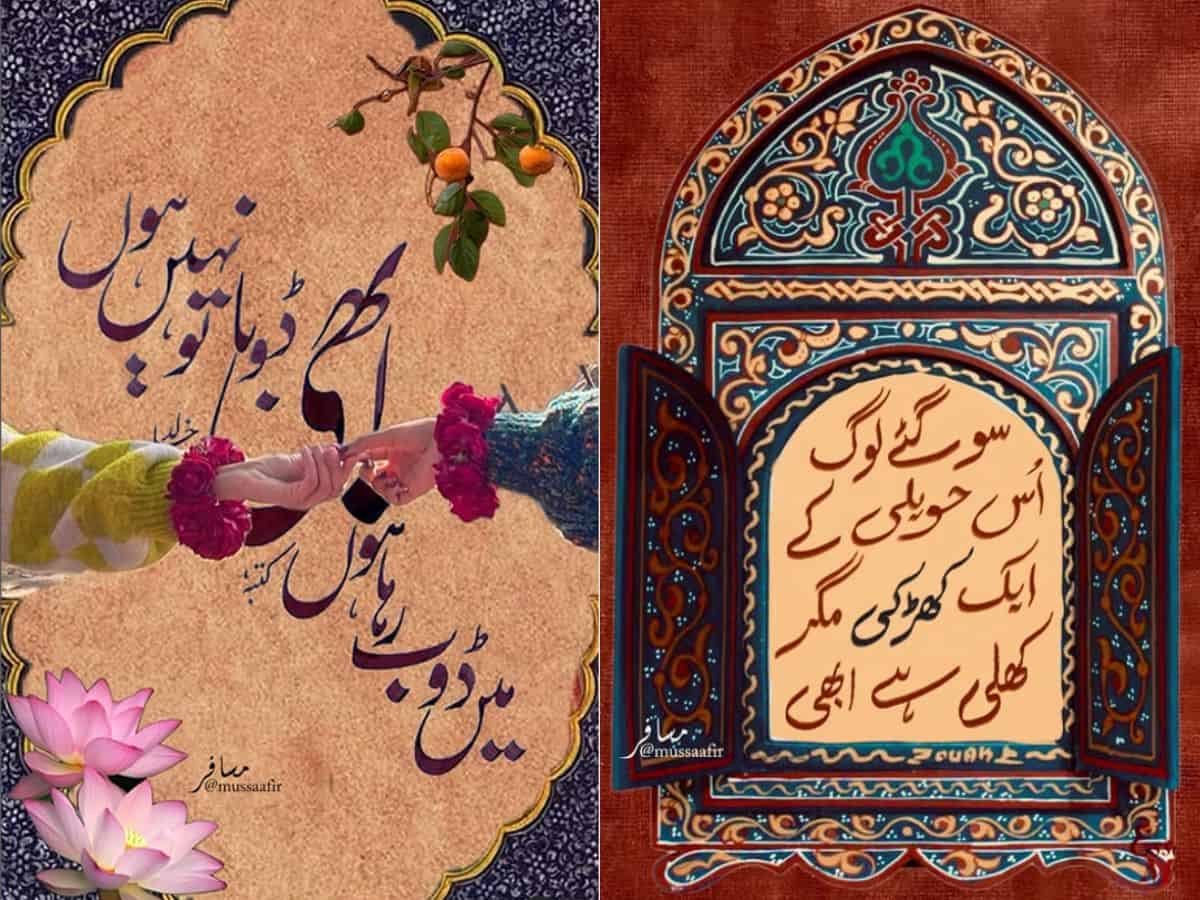 ابھی ڈوبا تو نہیں ہوں
میں ڈوب رہا ہوں
کتبہ
مسافر
@mussaafir
سو گئے لوگ
اُس حویلی کے
ایک کھڑکی مگر
کھلی ہے ابھی
مسافر
@mussaafir